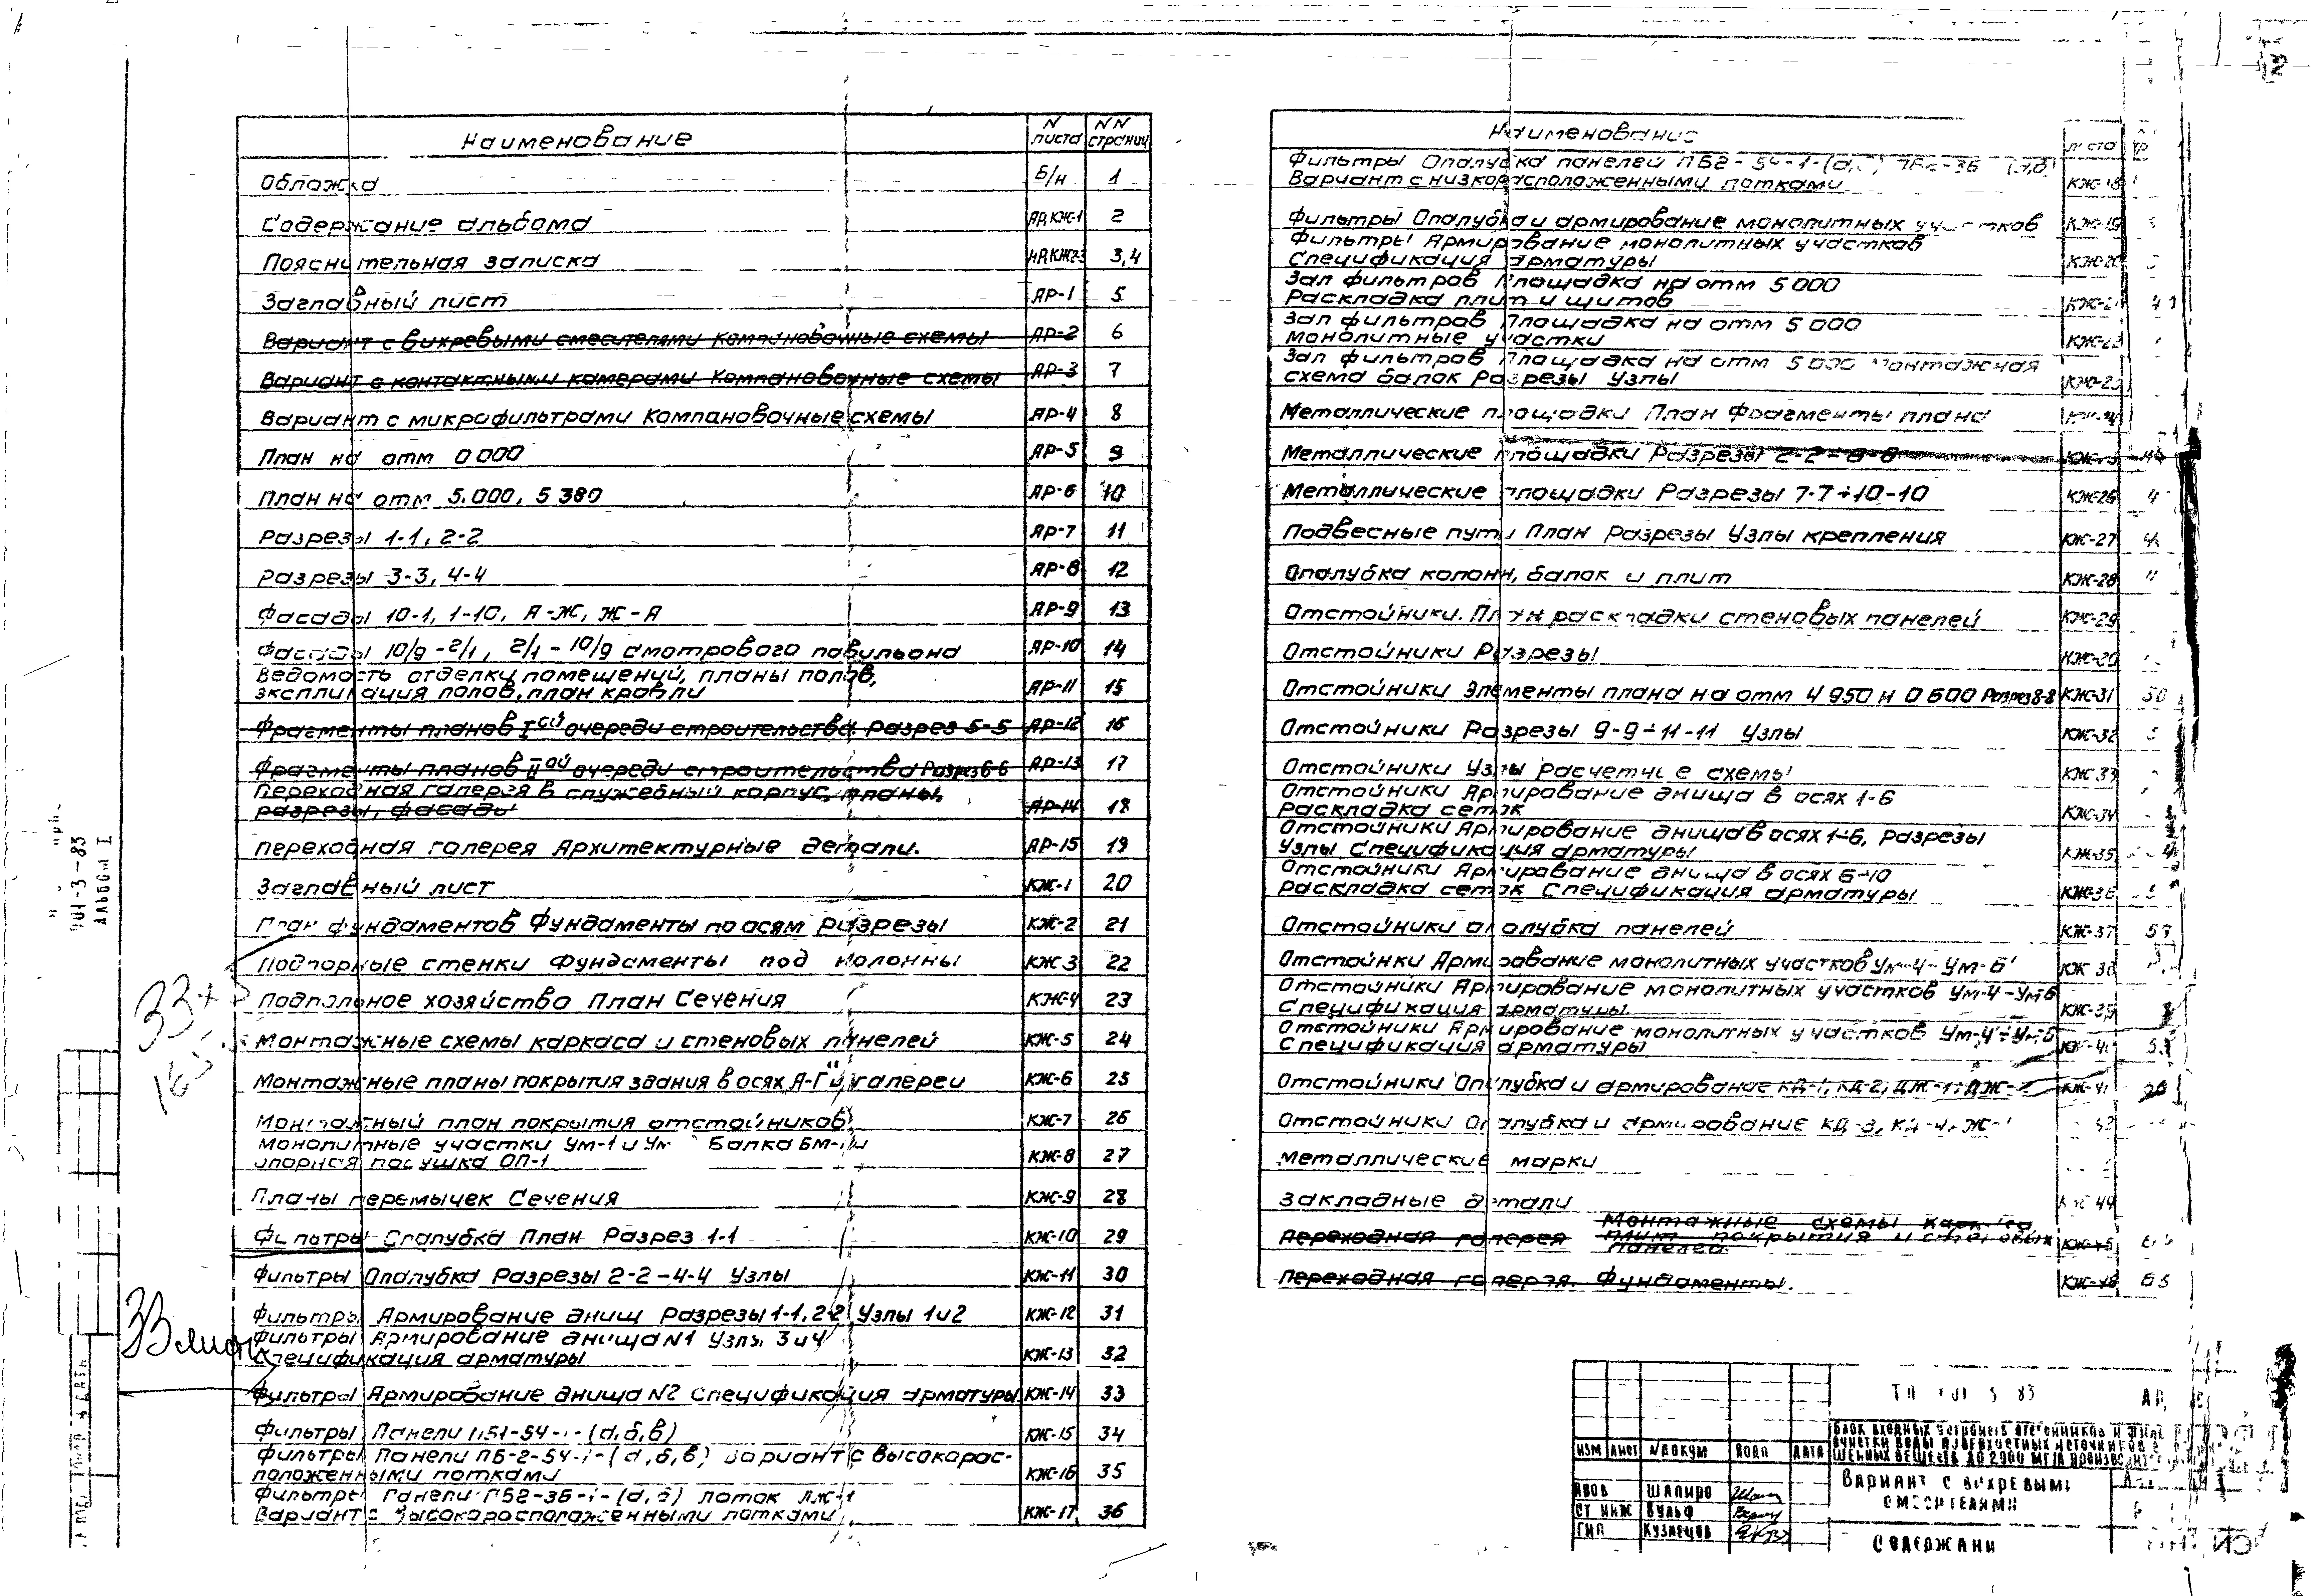 Наименование N листа NN страниц
Обложка Б/н 1
Содержание альбома АР,КЖ-1 2
Пояснительная записка АР,КЖ2-3 3,4
Заглавный лист АР-1 5
Вариант с вихревыми смесителями Компановочные схемы АР-2 6
Вариант с контактными камерами Компановочные схемы АР-3 7
Вариант с микрофильтрами Компановочные схемы АР-4 8
План на отм 0 000 АР-5 9
План на отм 5.000, 5 380 АР-6 10
Разрезы 1-1, 2-2 АР-7 11
Разрезы 3-3, 4-4 АР-8 12
Фасады 10-1, 1-10, А-Ж, Ж-А АР-9 13
Фасады 10/9-2/1, 2/1-10/9 смотрового павильона АР-10 14
Ведомость отделки помещений, планы полов,
экспликация полов, план кровли АР-11 15
Фрагменты планов Iой очереди строительства. Разрез 5-5 АР-12 16
Фрагменты планов IIой очереди строительства Разрез 6-6 АР-13 17
Переходная галерея в служебный корпус, планы,
разрезы, фасады АР-14 18
Переходная галерея Архитектурные детали. АР-15 19
Заглавный лист КЖ-1 20
План фундаментов Фундаменты по осям Разрезы КЖ-2 21
Подпорные стенки Фундаменты под колонны КЖ 3 22
Подпольное хозяйство План Сечения КЖ-4 23
Монтажные схемы каркаса и стеновых панелей КЖ-5 24
Монтажные планы покрытия здания в осях „А-Г" и галереи КЖ-6 25
Монтажный план покрытия отстойников КЖ-7 26
Монолитные участки Ум-1 и Ум Балка Бм-1 и
опорная подушка ОП-1 КЖ-8 27
Планы перемычек Сечения КЖ-9 28
Фильтры Опалубка План Разрез 1-1 КЖ-10 29
Фильтры Опалубка Разрезы 2-2-4-4 Узлы КЖ-11 30
Фильтры Армирование днищ Разрезы 1-1, 2-2 Узлы 1и2 КЖ-12 31
Фильтры Армирование днища N1 Узлы 3и4
Спецификация арматуры КЖ-13 32
Фильтры Армирование днища N2 Спецификация арматуры КЖ-14 33
Фильтры Панели ПБ1-54-1-(а,б,в) КЖ-15 34
Фильтры Панели ПБ-2-54-1-(а,б,в) Вариант с высокорас-
положенными лотками КЖ-16 35
Фильтры Панели ПБ2-36-1-(а,б) лоток ЛЖ-1
Вариант с высокорасположенными лотками КЖ-17 36
Наименование листа
Фильтры Опалубка панелей ПБ2-54-1-(а,б) ПБ2-36 (а,б)
Вариант с низкорасположенными лотками КЖ-18
Фильтры Опалубка и армирование монолитных участков КЖ-19
Фильтры Армирование монолитных участков
Спецификация арматуры КЖ-20
Зал фильтров Площадка на отм 5 000
Раскладка плит и щитов КЖ-2
Зал фильтров Площадка на отм 5 000
монолитные участки
Зал фильтров Площадка на отм 5 000 монтажная
схема балок Разрезы Узлы КЖ-23
Металлические площадки План Фрагменты плана
Металлические площадки Разрезы 2-2-6-6
Металлические площадки Разрезы 7-7÷10-10 КЖ-26
Подвесные пути План Разрезы Узлы крепления КЖ-27
Опалубка колонн, балок и плит КЖ-28
Отстойники. План раскладки стеновых панелей КЖ-29
Отстойники Разрезы КЖ-30
Отстойники Элементы плана на отм 4 950 и 0 600 Разрез 8-8 КЖ-31 50
Отстойники Разрезы 9-9÷11-11 Узлы КЖ-32
Отстойники Узлы Расчетные схемы КЖ 33
Отстойники Армирование днища в осях 1-6
Раскладка сеток КЖ-34
Отстойники Армирование днища в осях 1-6, Разрезы
Узлы Спецификация арматуры КЖ-35
Отстойники Армирование днища в осях 6-10
Раскладка сеток Спецификация арматуры КЖ-36
Отстойники опалубка панелей КЖ-37
Отстойники Армирование монолитных участков Ум-4-Ум-6 КЖ 38
Отстойники Армирование монолитных участков Ум-4-Ум-6
Спецификация арматуры. КЖ-39
Отстойники Армирование монолитных участков Ум-4÷Ум-6
Спецификация арматуры
Отстойники Опалубка и армирование КД-1, КД-2, ДЖ-1 КЖ-41
Отстойники Опалубка и армирование КД-3, КД-4
металлические марки
Закладные детали КЖ 44
Переходная галерея Монтажные схемы каркаса,
плит покрытия и стеновых
панелей. КЖ-45
Переходная галерея. Фундаменты. КЖ-46
901-3-83
АЛЬБОМ I
ИЗМ ЛИСТ N ДОКУМ ПОДП ДАТА
ШАПИРО
СТ ИНЖ ВУЛЬФ
ГИП КУЗНЕЦОВ
ВАРИАНТ С ВИХРЕВЫМИ
СМЕСИТЕЛЯМИ
СОДЕРЖАНИ